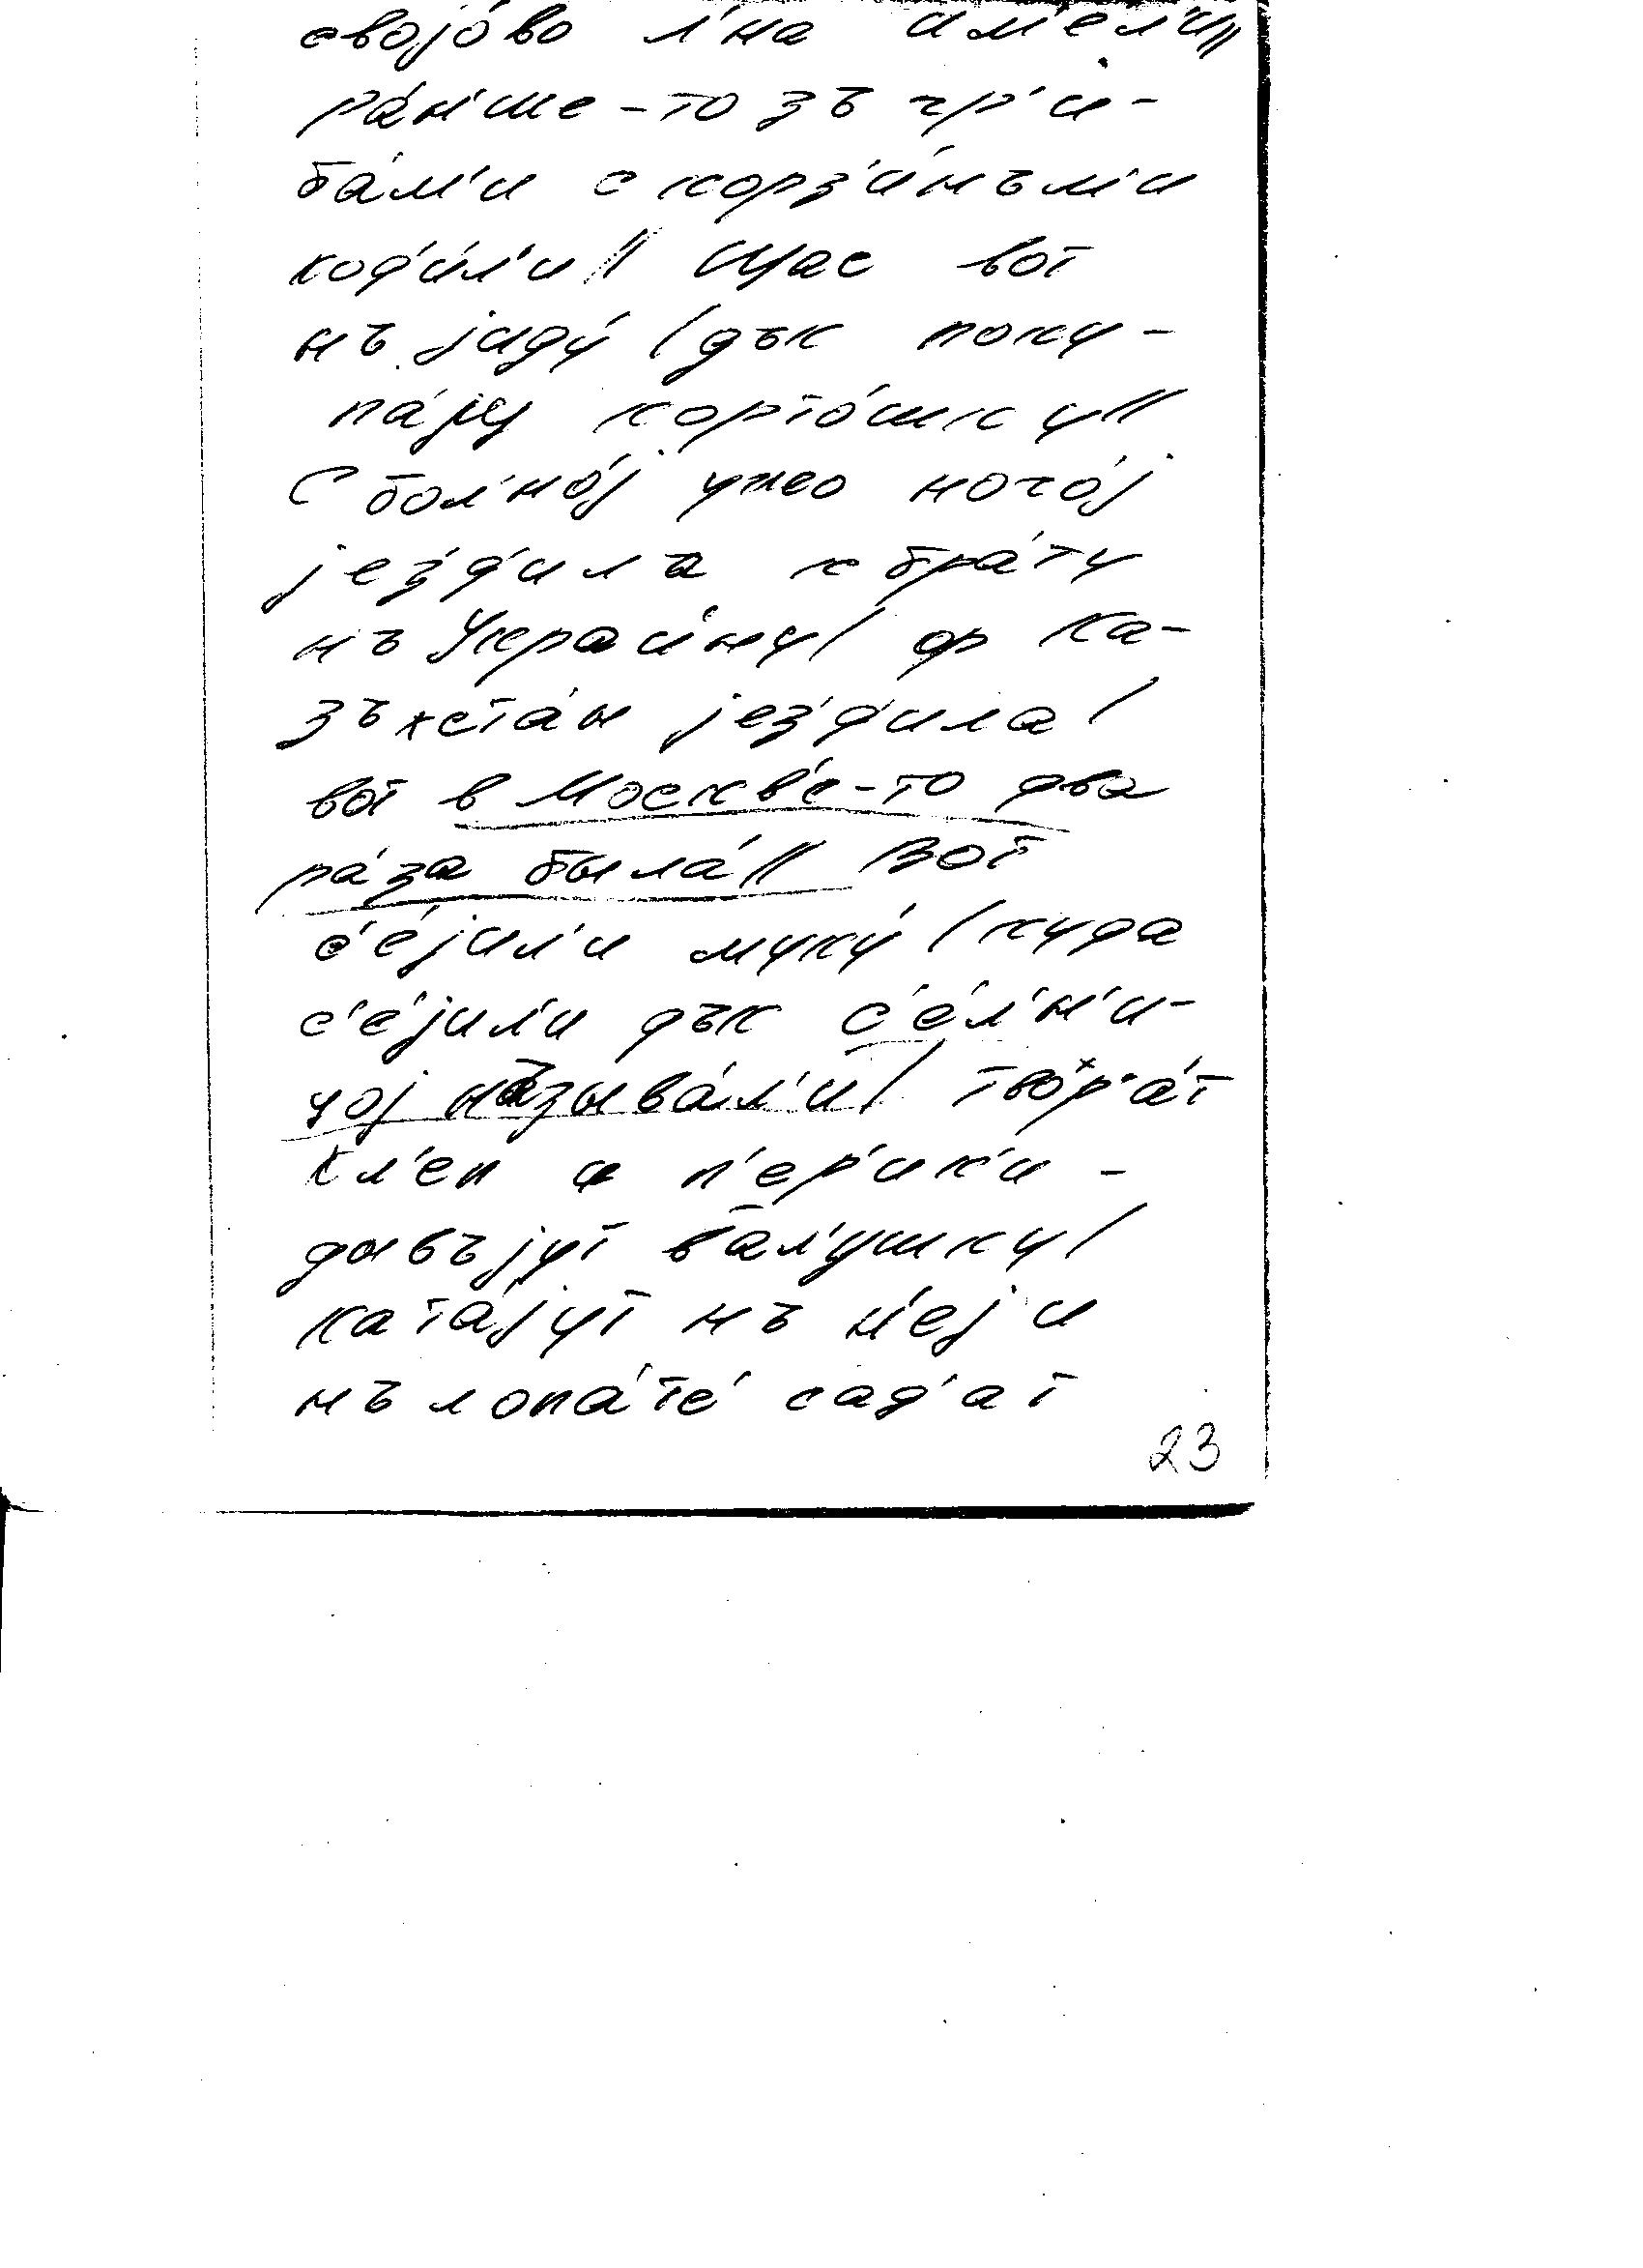 својо́во л'на им'ел'и//
ра́н'ше-то зъ гр'и-
ба́м'и с корз'и́нъм'и
ход'и́л'и// Щас вот
нъ јиду́ / дък поку-
па́ју корто́шку//
С бол'но́ј ужо ночо́ј
јез'д'илъ к бра́ту
нъ Украи́ну/ ф Ка-
зъхста́н јез'д'ила/
вот в Москв'е́-то два
ра́за была́// Вот
с'е́јил'и муку́ / куда
с'е́јил'и дък с'е́л'н'и-
цој называ́л'и/ твор'а́т
хл'еп и п'ер'ик'и-
дывъјут ва́л'ушку/
ката́јут нъ н'еј и
нъ лопа́т'е сад'ат
23